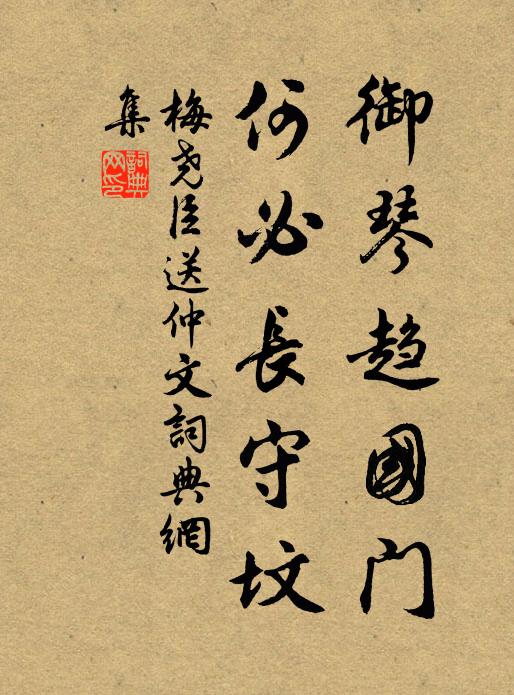 御琴趋國门
何必長守坟
梅尧臣送仲文詞典網
集
詞典
网印